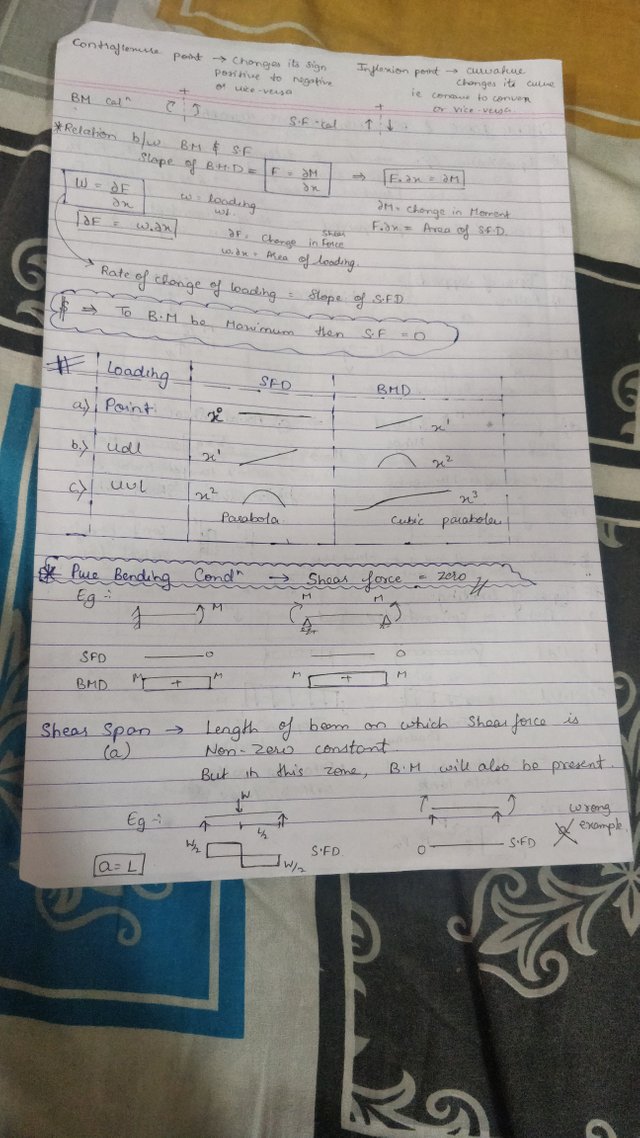 Contraflexure point → Changes its sign
positive to negative
or vice-versa
Inflexion point → curvature
changes its curve
ie concave to convex
or vice-versa.
BM calⁿ + S.F-cal +
*Relation b/w BM & S.F
Slope of B.M.D = F = ∂M/∂x ⇒ F.∂x = ∂M
W = ∂F/∂x w = loading
∂M = change in Moment
∂F = w.∂x ∂F = Change in Shear Force
F.∂x = Area of S.F.D.
w.∂x = Area of loading.
Rate of change of loading = slope of S.F.D
⇒ To B.M be Maximum then S.F = 0
# Loading SFD BMD
a) Point x⁰ x¹
b.) udl x¹ x²
c.) uvl x² x³
Parabola Cubic parabola
* Pure Bending Condⁿ → Shear force = zero
Eg :- M M M
SFD 0 0
BMD M + M M + M
Shear Span → Length of beam on which shear force is
(a) Non-zero constant.
But in this zone, B.M will also be present.
Eg :- W L/2 wrong example
W/2 W/2 S.FD 0 S.FD
a = L